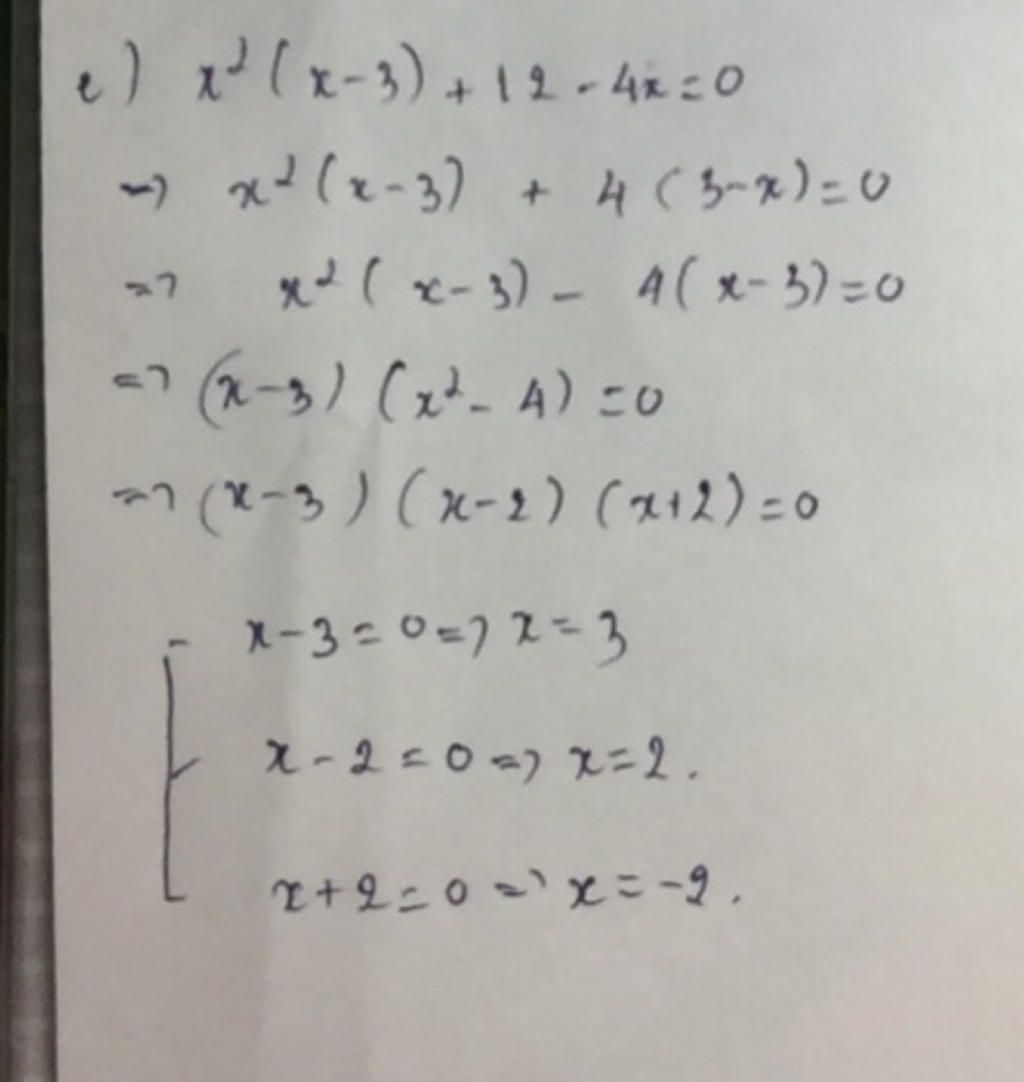 e) x²(x-3)+12-4x=0
=> x²(x-3) + 4(3-x)=0
=> x²(x-3) - 4(x-3)=0
=> (x-3)(x²-4)=0
=> (x-3)(x-2)(x+2)=0
x-3=0=>x=3
x-2=0=>x=2.
x+2=0=>x=-2.